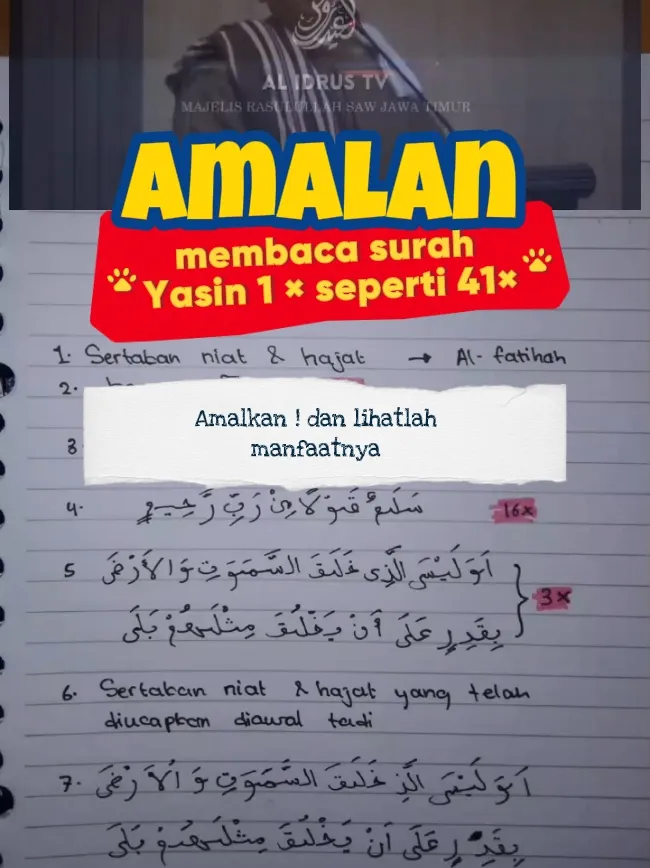 AL IDRUS TV
MAJELIS RASULULLAH SAW JAWA TIMUR
AMALAN
membaca surah
Yasin 1 × seperti 41×
1. Sertakan niat & hajat → Al-fatihah
2.
Amalkan ! dan lihatlah
manfaatnya
3
4. سَلٰمٌ قَوْلًا مِنْ رَبٍّ رَّحِيمٍ 16x
5 اَوَلَيْسَ الَّذِى خَلَقَ السَّمٰوٰتِ وَالْاَرْضَ
بِقٰدِرٍ عَلٰى اَنْ يَخْلُقَ مِثْلَهُمْ بَلٰى
3x
6. Sertakan niat & hajat yang telah
diucapkan diawal tadi
7. اَوَلَيْسَ الَّذِ خَلَقَ السَّمٰوٰتِ وَالْاَرْضَ
بِقٰدِرٍ عَلٰى اَنْ يَخْلُقَ مِثْلَهُمْ بَلٰى